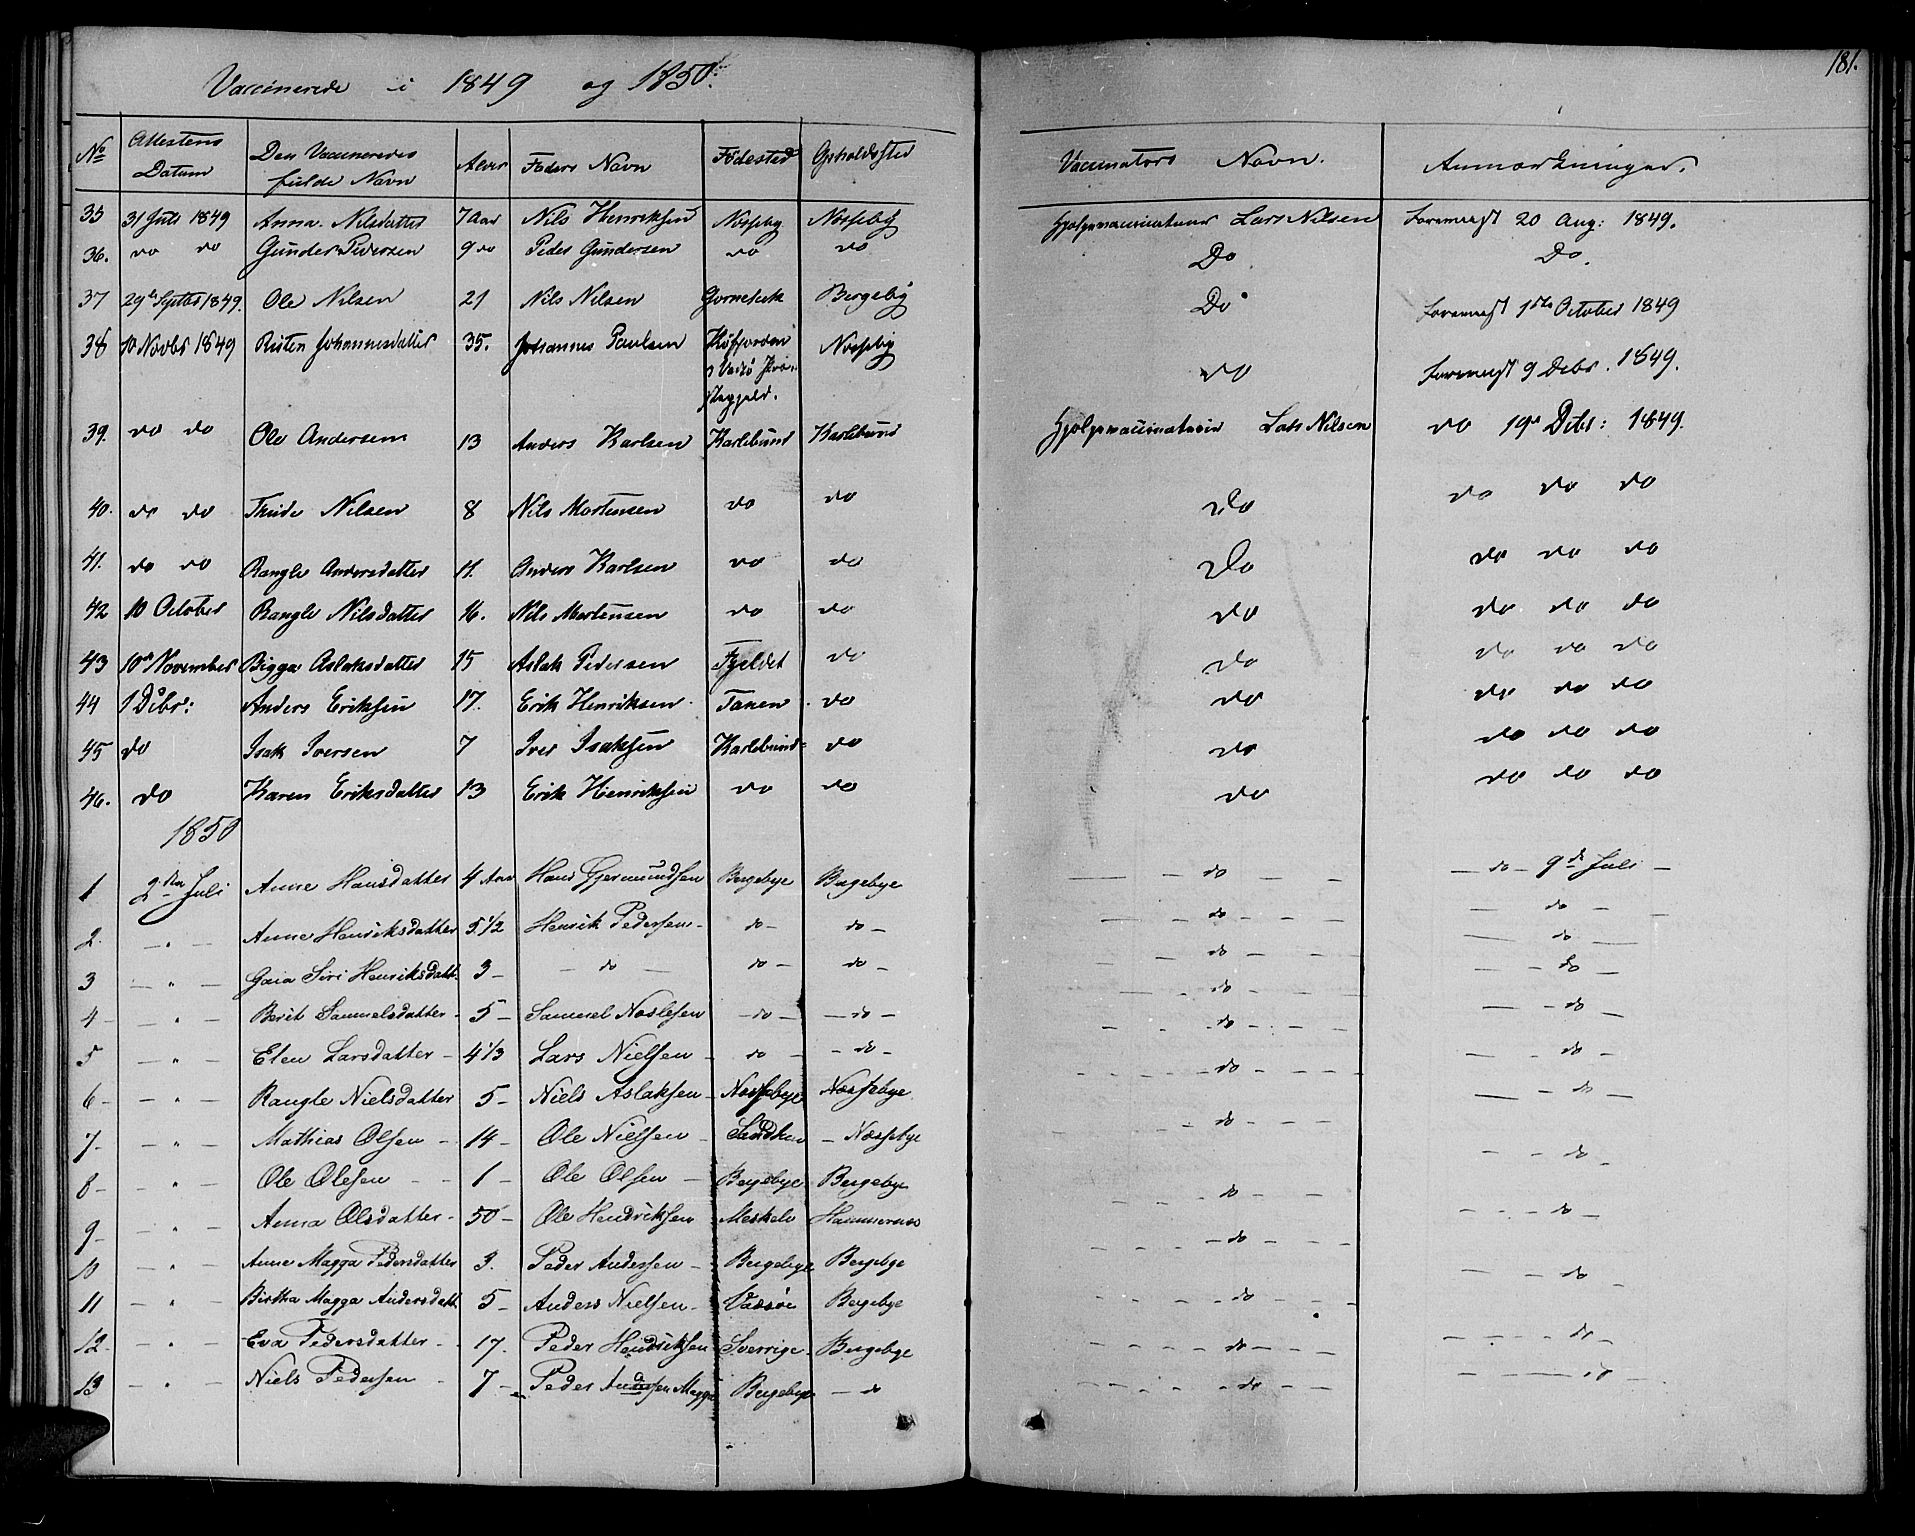 181.
Vaccinerede i 1849 og 1850.
No | Attestens Datum | Den Vaccineredes fulde Navn | Alder | Faders Navn | Fødested | Opholdssted | Vaccinators Navn. | Anmærkninger.
35 | 31 Juli 1849 | Anna Nilsdatter | 7 Aar | Nils Henriksen | Næsseby | Næsseby | Hjelpevaccinateur Lars Nilsen | Forevist 20 Aug: 1849.
36. | do do | Gunder Pedersen | 9 do | Peder Gundersen | do | do | Do | Do.
37 | 29de Septbr 1849. | Ole Nilsen | 21 | Nils Nilsen | | Bergeby | Do | Forevist 1ste October 1849
38 | 10 Novbr 1849 | Risten Johannesdatter | 35. | Johannes Paulsen | Køfjorden i Vadsø Præstegjeld. | Næsseby | do | Forevist 9 Debr. 1849.
39. | do do | Ole Andersen | 13 | Anders Karlsen | Karlebund | Karlebund | Hjelpevaccinateur Lars Nilsen | do 19de Debr: 1849.
40. | do do | Nilsen | 8 | Nils Mortensen | do | do | Do | do do do
41. | do do | Rangle Andersdatter | 11. | Anders Karlsen | do | do | Do | do do do
42 | 10 October | Rangle Nilsdatter | 16. | Nils Mortensen | do | do | do | do do do
43 | 10de November | Bigga Aslaksdatter | 15 | Aslak Pedersen | Fjeldet | do | do | do do do
44 | 1 Debr: | Anders Eriksen | 17. | Erik Henriksen | Tanen | do | do | do do do
45 | do | Isak Iversen | 7 | Iver Isaksen | Karlebund | do | do | do do do
46. | do | Karen Eriksdatter | 13 | Erik Henriksen | do | do | do | do do do
1850
1 | 2den Juli | Anne Hansdatter | 4 Aar | Hans Gjermundsen | Bergebye | Bergebye | — do — | — do — 9de Juli —
2. | — " — | Anne Henriksdatter | 5 1/2 | Henrik Pedersen — | do — | do — | — do — | — do —
3 | — " — | Gaia Siri Henriksdatt. | 3 — | — do — | do — | do — | — do — | — do —
4 — | — " — | Berit Samuelsdatter — | 5 — | Samuel Noslesen | — do — | — do — | — do — | — do —
5 | — " — | Elen Larsdatter — | 4 1/3 | Lars Nielsen — | do — | — do — | — do — | — do —
6 — | — " — | Rangle Nielsdatter | 5 — | Niels Aslaksen — | Næssebye | Næssebye. | — do — | — do —
7 — | — " — | Mathias Olsen — | 14 — | Ole Nielsen — | | — Næssebye | — do — | — do —
8 — | — " — | Ole Olesen — | 1 — | Ole Olsen — | Bergebye | Bergebye | — do — | — do —
9 — | — " — | Anna Olsdatter — | 50 — | Ole Hendriksen | Meskelv | Hammernæs | — do — | — do —
10 | — " — | Anne Magga Pedersdatter | 3. | Peder Andersen — | Bergebye | Bergebye | — do — | — do —
11 | — " — | Birtha Magga Andersdatt | 5 — | Anders Nielsen — | Vadsøe | Bergebye | — do — | — do —
12. | — " — | Eva Pedersdatter — | 17. | Peder Hendriksen | Sverrige — | Bergebye | — do — | — do —
13 | — " — | Niels Pedersen — | 7 — | Peder Andersen Magga | Bergebye | — do | — do — | — do —